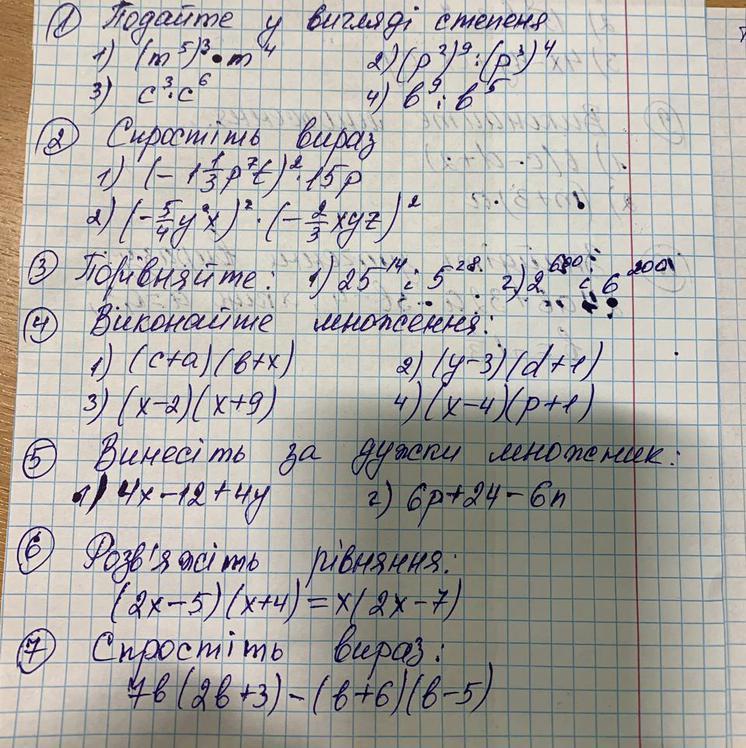 ① Подайте у вигляді степеня
1) (m⁵)³ • m⁴ 2) (p²)⁹ : (p³)⁴
3) c³ · c⁶ 4) b⁹ : b⁵
② Спростіть вираз
1) (- 1 1/3 p⁷t)² · 15p
2) (- 5/4 y²x)² · (- 2/3 xyz)²
③ Порівняйте: 1) 25¹⁴ і 5²⁸. 2) 2⁶⁰⁰ і 6²⁰⁰
④ Виконайте множення:
1) (c+a)(b+x) 2) (y-3)(d+1)
3) (x-2)(x+9) 4) (x-4)(p+1)
⑤ Винесіть за дужки множник:
1) 4x-12+4y 2) 6p+24-6n
⑥ Розв'яжіть рівняння:
(2x-5)(x+4)=x(2x-7)
⑦ Спростіть вираз:
7b(2b+3)-(b+6)(b-5)